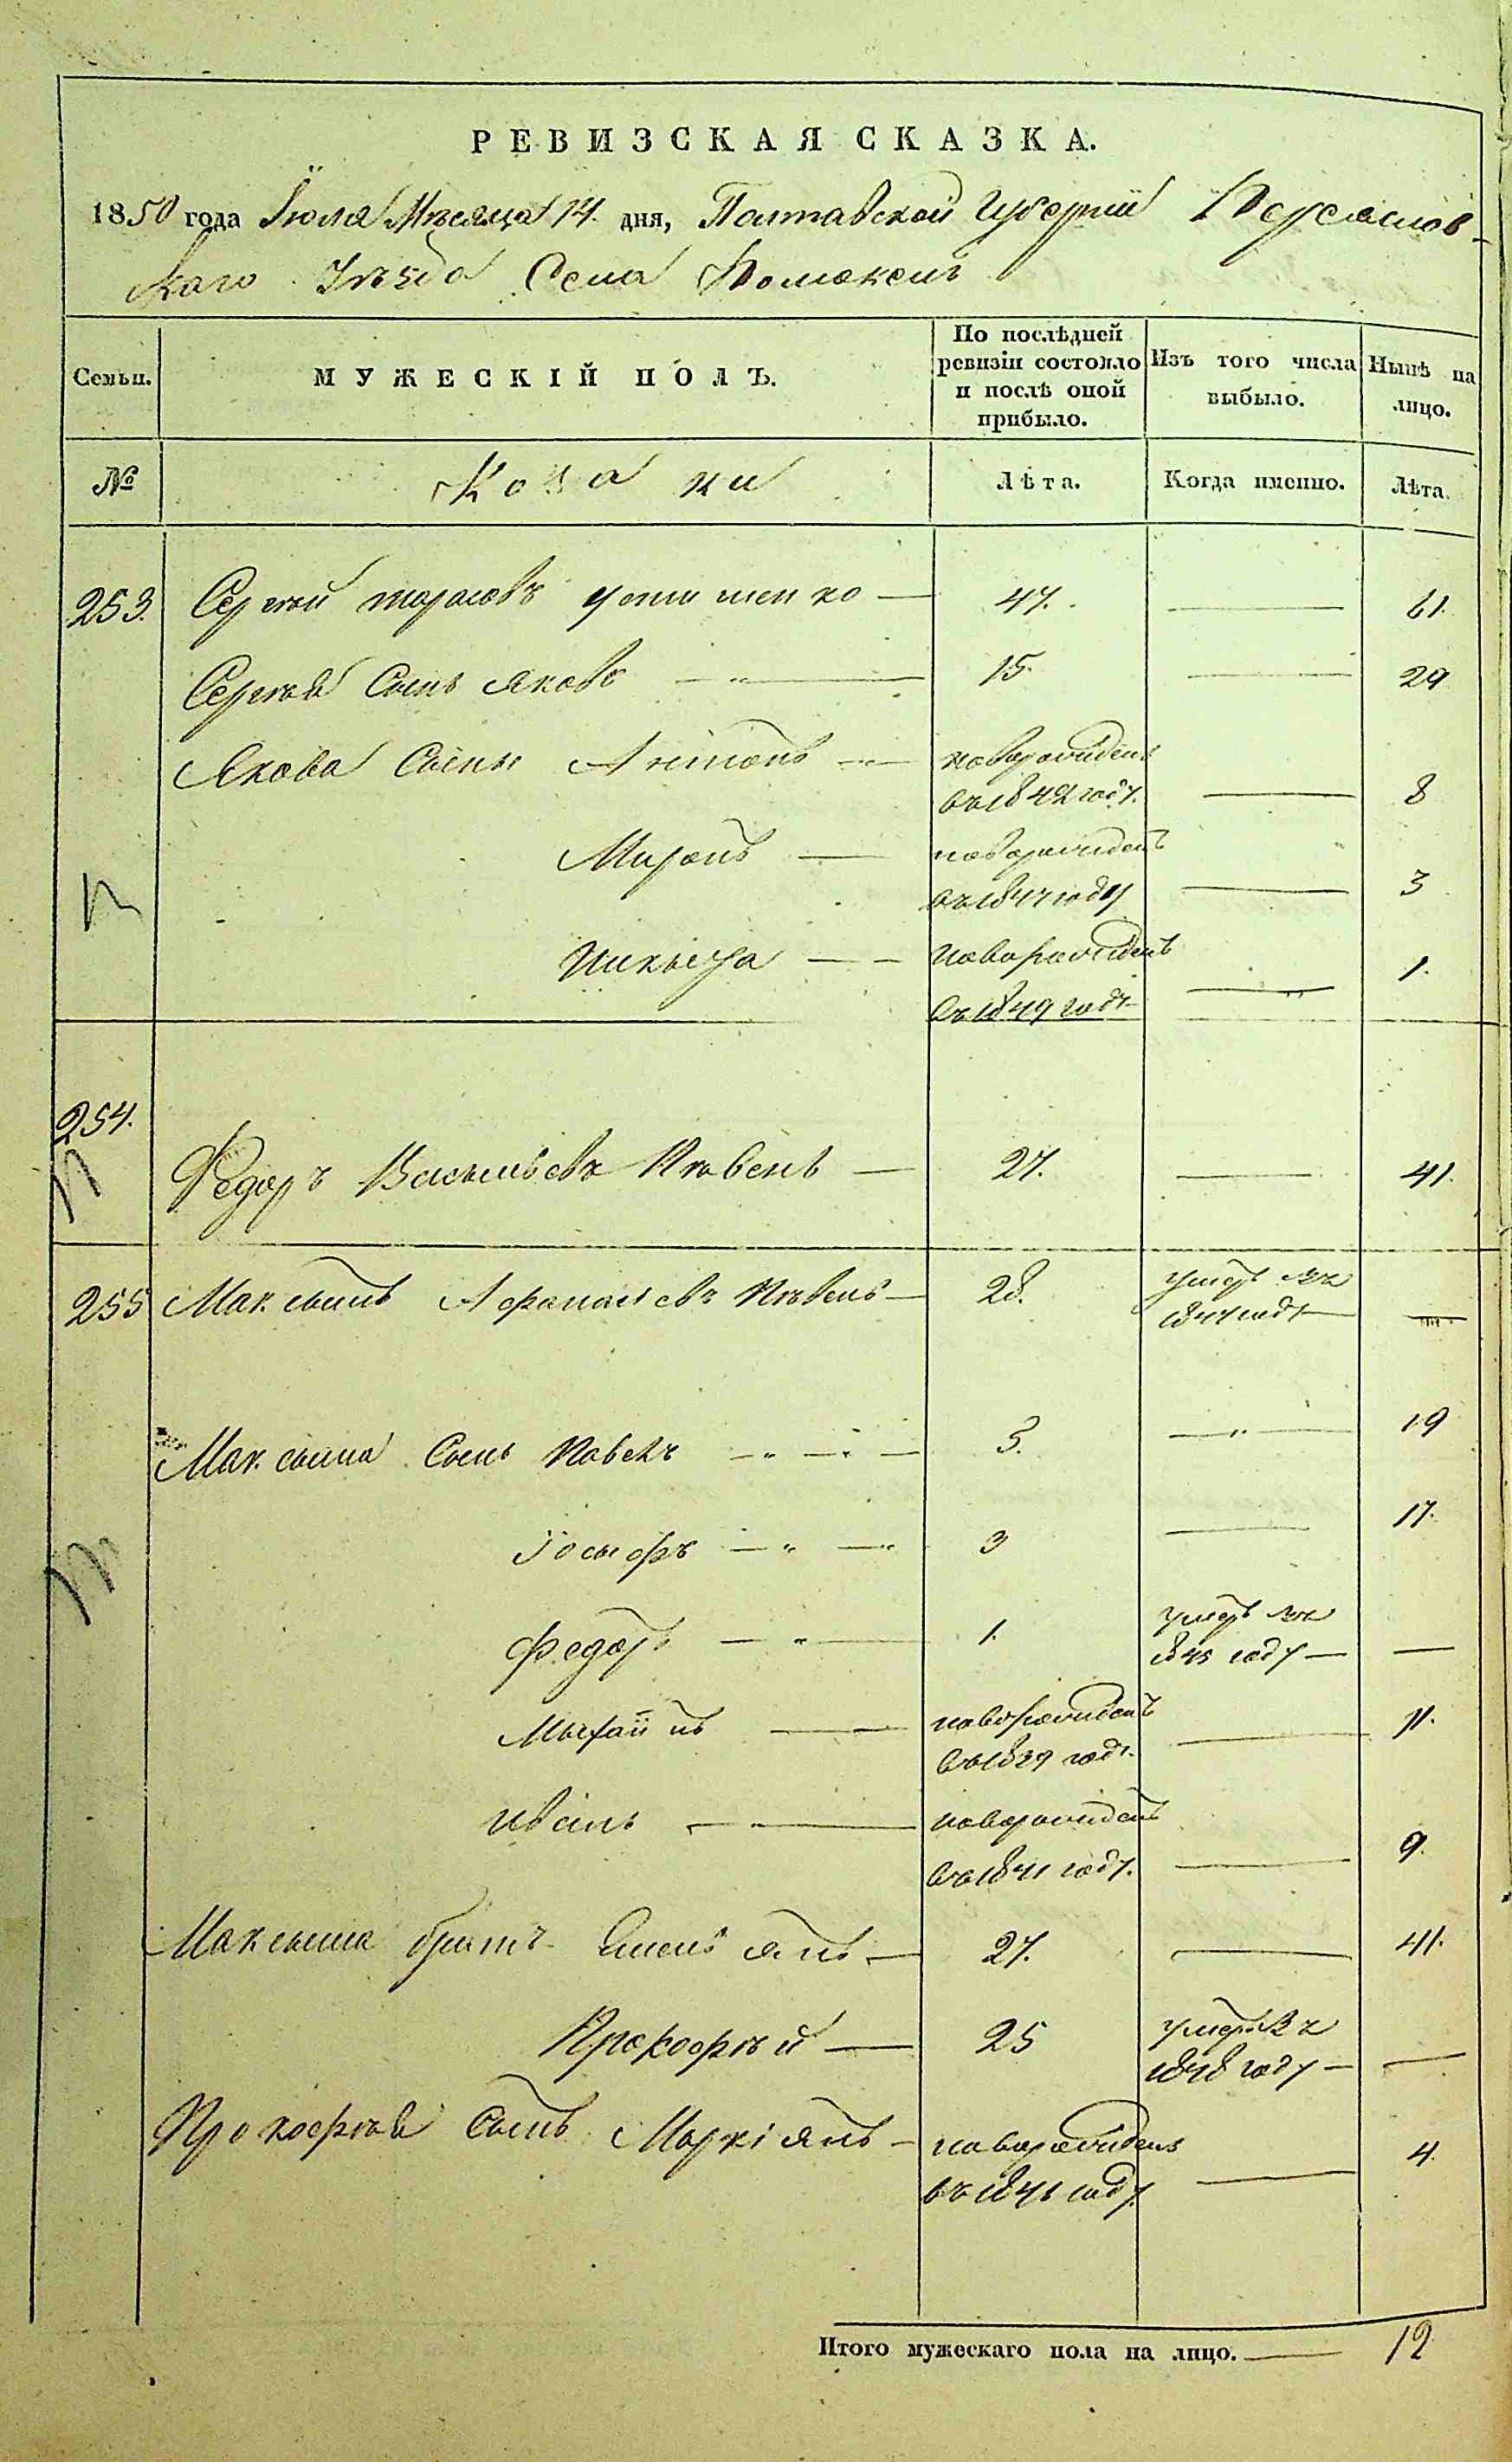 РЕВИЗСКАЯ СКАЗКА.
1850 года Июля Мѣсяца 14. дня, Полтавской Губерніи Переяслов-
скаго Уѣзда Села Помокель
Семьи. МУЖЕСКІЙ ПОЛЪ. По послѣдней ревизіи состояло и послѣ оной прибыло. Изъ того числа выбыло. Нынѣ на лицо.
№ Козаки Лѣта. Когда именно. Лѣта.
253. Сергѣй Тарасовъ Устименко — 47. — 61.
Сергѣя Сынъ Яковъ — 15. — 29
Якова Сыны Антонъ — новорожденъ
въ 1842 году. — 8
Миронъ — новорожденъ
въ 1847 году — 3
Никыта — новорожденъ
въ 1849 году — 1.
254.
Федоръ Васыльевъ Пѣвень — 27. — 41.
255 Максымъ Афанасіевъ Пѣвень — 28. умеръ въ
1844 году —
Максыма Сынъ Павелъ — 5. — 19
Іосыфъ — 3 — 17.
Федоръ — 1. умеръ въ
1845 году — —
Мыхайлъ — новорожденъ
въ 1839 году. — 11.
Иванъ — новорожденъ
въ 1841 году. — 9.
Максыма братъ Емельянъ — 27. — 41.
Прокофѣй — 25 умеръ въ
1848 году — —
Прокофѣя Сынъ Маркіянъ — новорожденъ
въ 1846 году. — 4.
Итого мужескаго пола на лицо. — 12